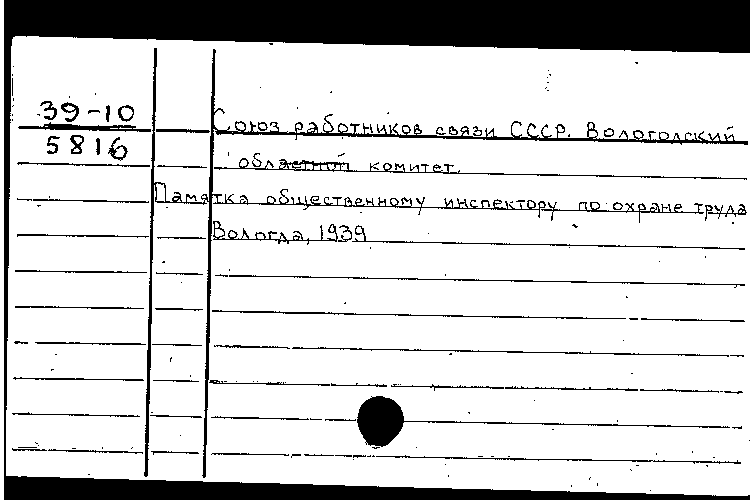 39-10
5816
Союз работников связи СССР. Вологодский
областной комитет.
Памятка общественному инспектору по охране труда
Вологда, 1939